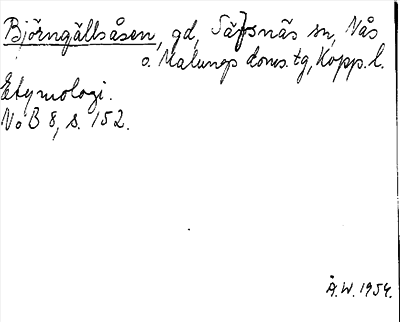 Björngällsåsen, gd, Säfsnäs sn, Nås
o. Malungs doms.tg, Kopp. l.
Etymologi.
NoB 8, s. 152.
Å.W. 1954.